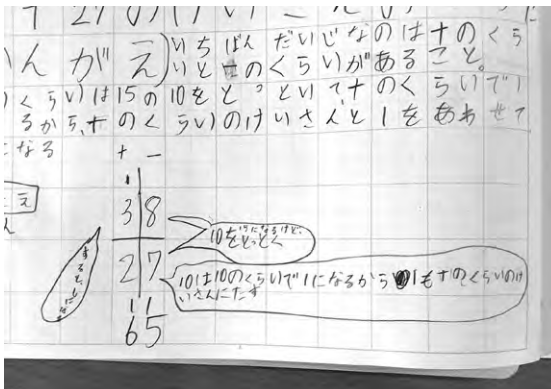 127の(けいさん
んがえ)いちばん だいじなのは十のくら
いと一のくらいがあること。
くらい)は15の10をとっといて、十のくらいで1
るから、十のくらいのけいさんと1をあわせて
になる
こえ
十 一
1
3 8
10をとっとく
2 7
10は10のくらいで1になるから1も十のくらいのけ
いさんにたす
1 1
6 5